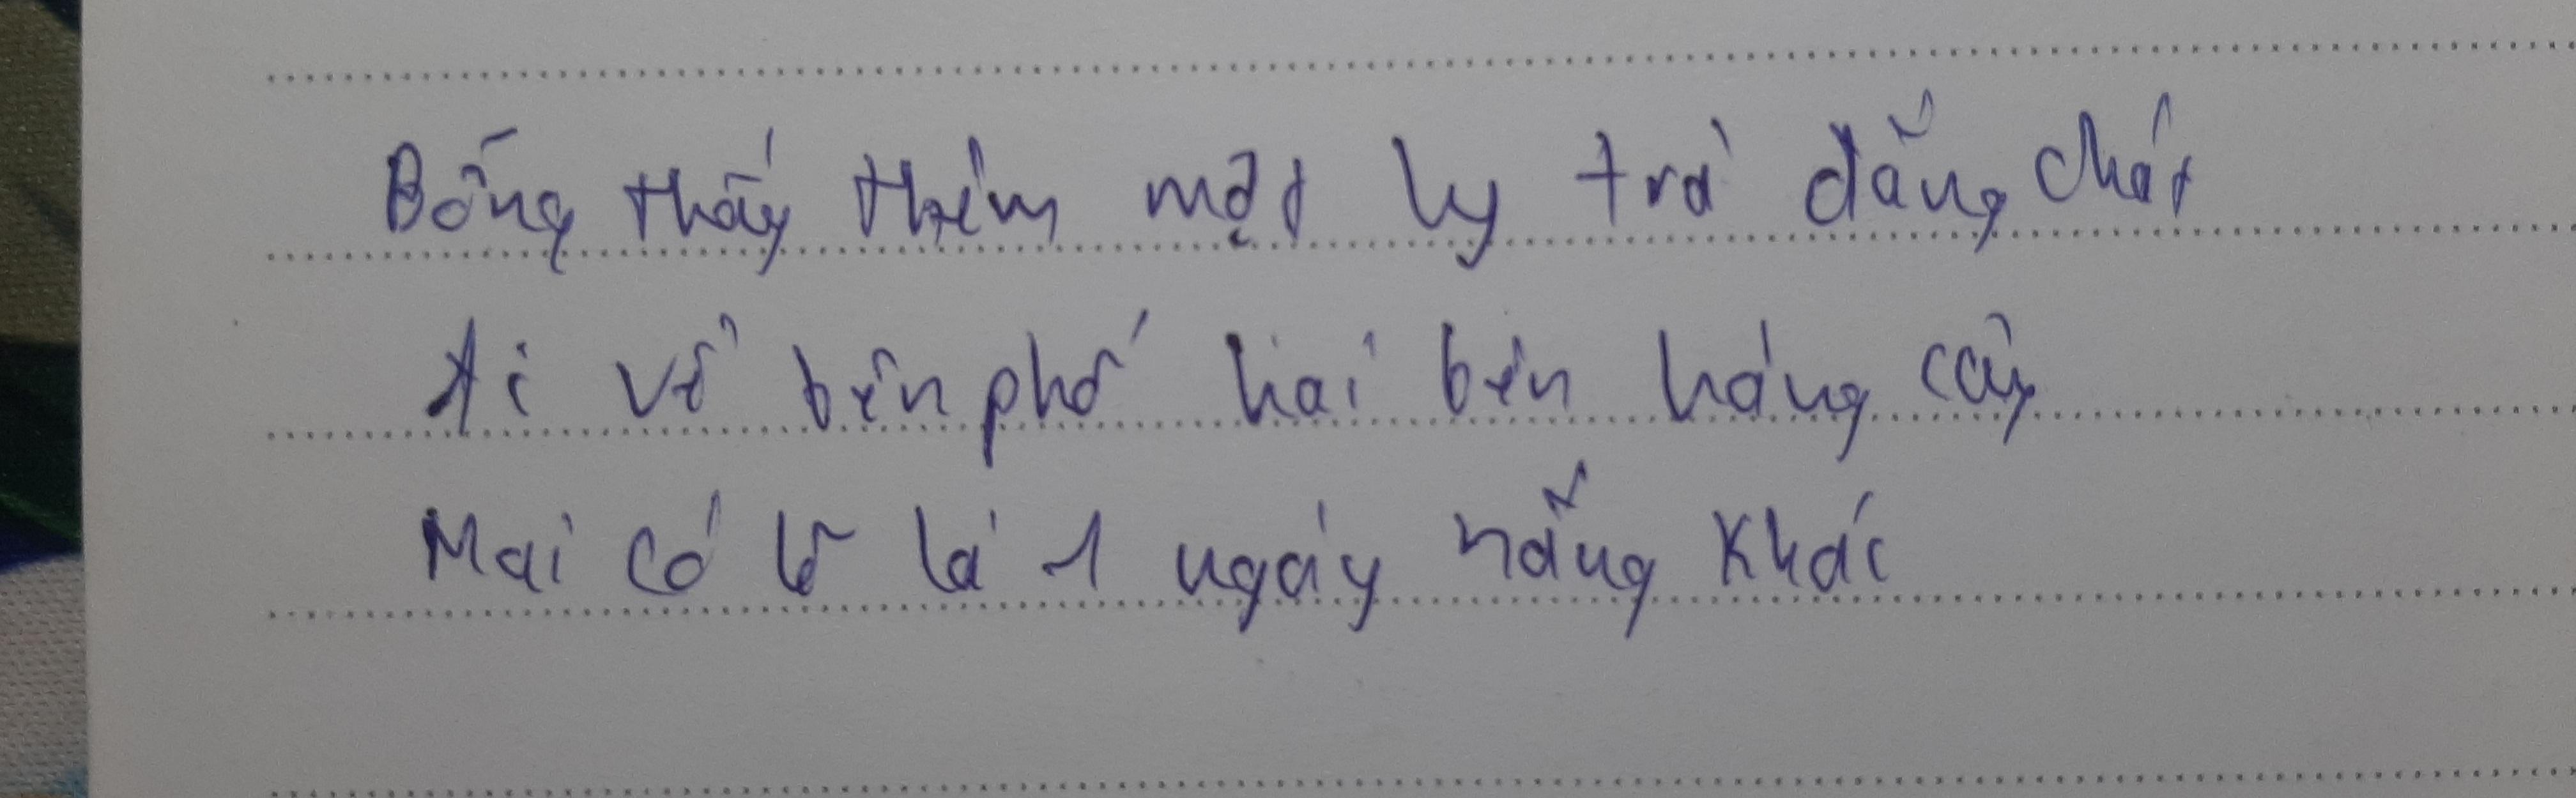 Bỗng thấy thèm một ly trà đắng chát
Ai về bên phố hai bên hàng cây
Mai có lẽ là 1 ngày nắng khác